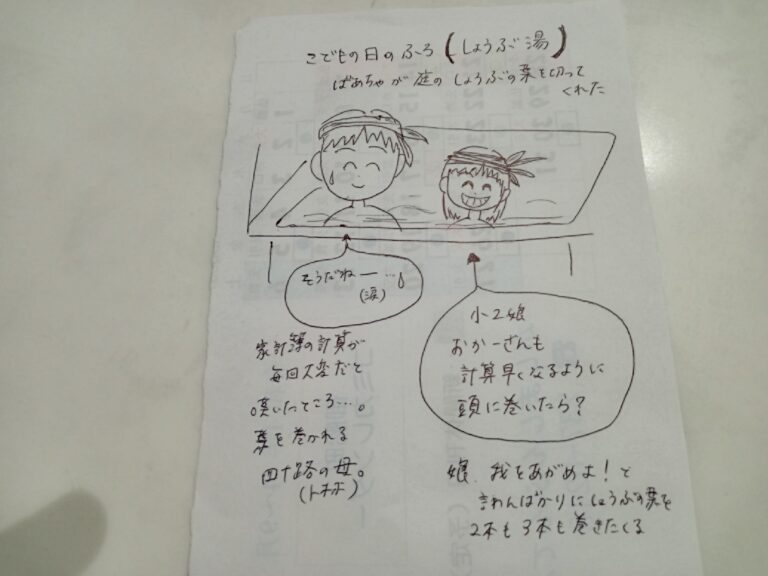 こどもの日のふろ(しょうぶ湯)
ばあちゃが庭のしょうぶの葉を切って
くれた
そうだねー…
(涙)
家計簿の計算が
毎回大変だと
嘆いたところ…。
葉を巻かれる
四十路の母。
(トホホ)
小2娘
おかーさんも
計算早くなるように
頭に巻いたら?
娘、我をあがめよ!と
言わんばかりにしょうぶの葉を
2本も3本も巻きたくる